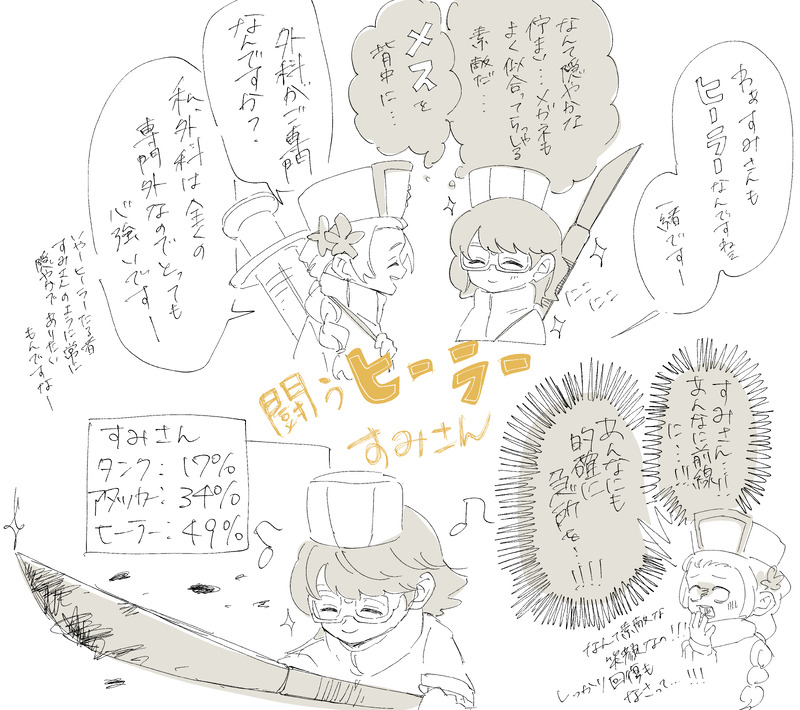 わぁすみさんも
ヒーラーなんですねぇ
一緒ですー
なんて穏やかな
佇まい…メガネも
よく似合ってらっしゃる
素敵だ…
メスを
背中に…
外科がご専門
なんですか?
私、外科は全くの
専門外なのでとっても
心強いですー
いやーヒーラーたる者
すみさんのように常に
穏やかで ありたい
もんですなー
ニコニコ
闘うヒーラー
すみさん
すみさん
タンク:17%
アタッカー:34%
ヒーラー:49%
すみさん…!!
あんなに前線
に…!!
あんなにも
的確に
急所を!!!!
なんて素敵な
笑顔なの!!!
しっかり回復も
なさって…!!!